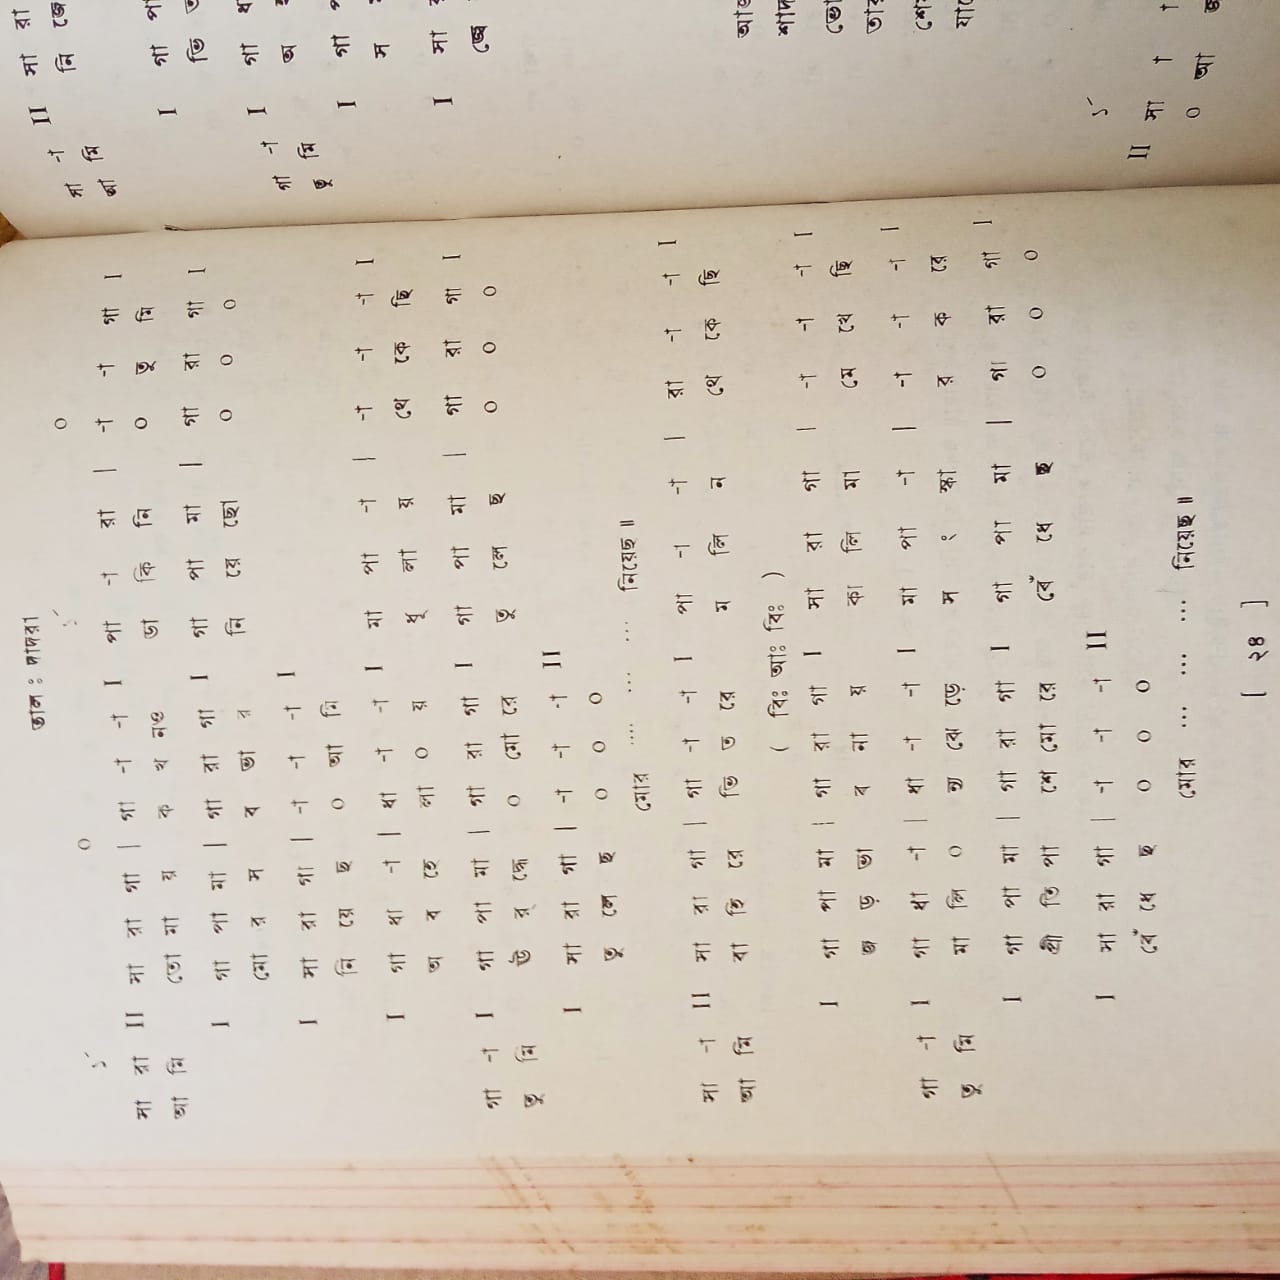 তাল : দাদরা
১´ ০ ১´ ০
সা রা II সা রা গা | গা -া -া I পা -া রা | -া -া গা I
আ মি তো মা য় ক খ নও ডা কি নি ০ তু মি
I গা পা মা | গা রা গা I গা পা মা | গা রা গা I
মো র স ব ভা র নি য়ে ছো ০ ০ ০
I সা রা গা | -া -া -া I
নি য়ে ছ ০ আ মি
I গা ধা -া | ধা -া -া I মা পা -া | -া -া -া I
অ ব হে লা ০ য় ধূ লা য় থে কে ছি
গা -া I গা পা মা | গা রা গা I গা পা মা | গা রা গা I
তু মি উ র্ দ্ধে ০ মো রে তু লে ছ ০ ০ ০
I সা রা গা | -া -া -া II
তু লে ছ ০ ০ ০
মোর .... ... .... নিয়েছ ॥
সা -া II সা রা গা | গা -া -া I পা -া -া | রা -া -া I
আ মি বা হি রে ভি ত রে ম লি ন থে কে ছি
( বিঃ আঃ বিঃ )
I গা পা মা | গা রা গা I সা রা গা | -া -া -া I
জ ড় তা ব না য় কা লি মা মে খে ছি
গা -া I গা ধা -া | ধা -া -া I মা পা -া | -া -া -া I
তু মি মা লি ০ ন্য ঝে ড়ে স ং স্কা র ক রে
I গা পা মা | গা রা গা I গা পা মা | গা রা গা I
প্রী তি পা শে মো রে বেঁ ধে ছ ০ ০ ০
I সা রা গা | -া -া -া II
বেঁ ধে ছ ০ ০ ০
মোর ... ... ... নিয়েছ ॥
[ ২৪ ]
সা -া II সা রা
আ মি নি জে
I গা
I গা
গা -া I গা
তু মি স
I সা
১´
II সা -া
০ আ